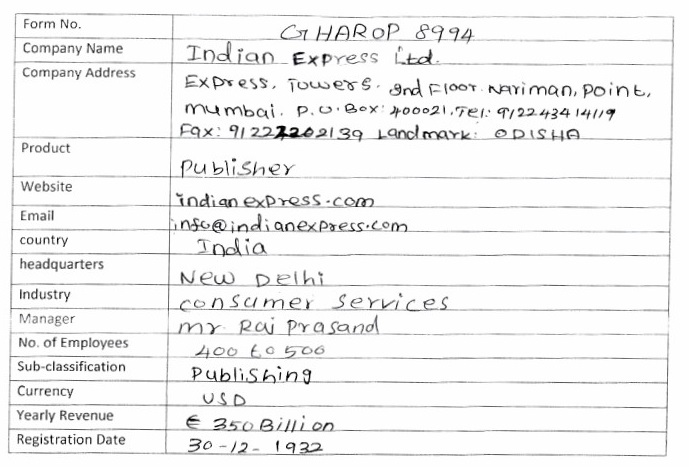 Form No. GHAROP 8994
Company Name Indian Express Ltd.
Company Address Express, Towers. 2nd Floor. Nariman, Point,
mumbai. P.O.Box: 400021, Tel: 912243414119
Fax: 91227202139 Landmark: ODISHA
Product Publisher
Website indianexpress.com
Email info@indianexpress.com
country India
headquarters New Delhi
Industry consumer services
Manager mr. Raj Prasand
No. of Employees 400 to 500
Sub-classification Publishing
Currency USD
Yearly Revenue € 350 Billion
Registration Date 30-12-1932